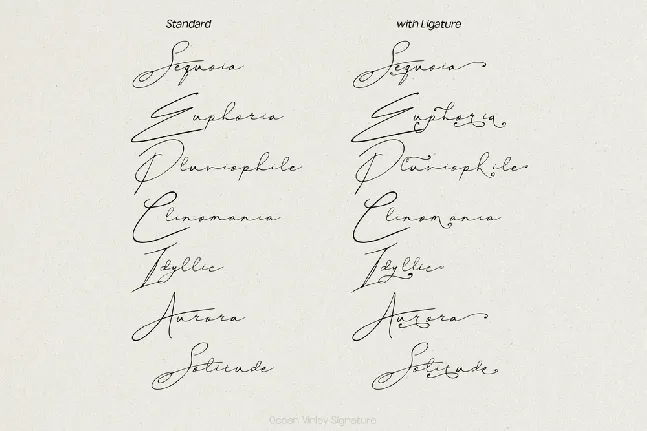 Standard with Ligature
Sequoia Sequoia
Euphoria Euphoria
Pluviophile Pluviophile
Clinomania Clinomania
Idyllic Idyllic
Aurora Aurora
Solitude Solitude